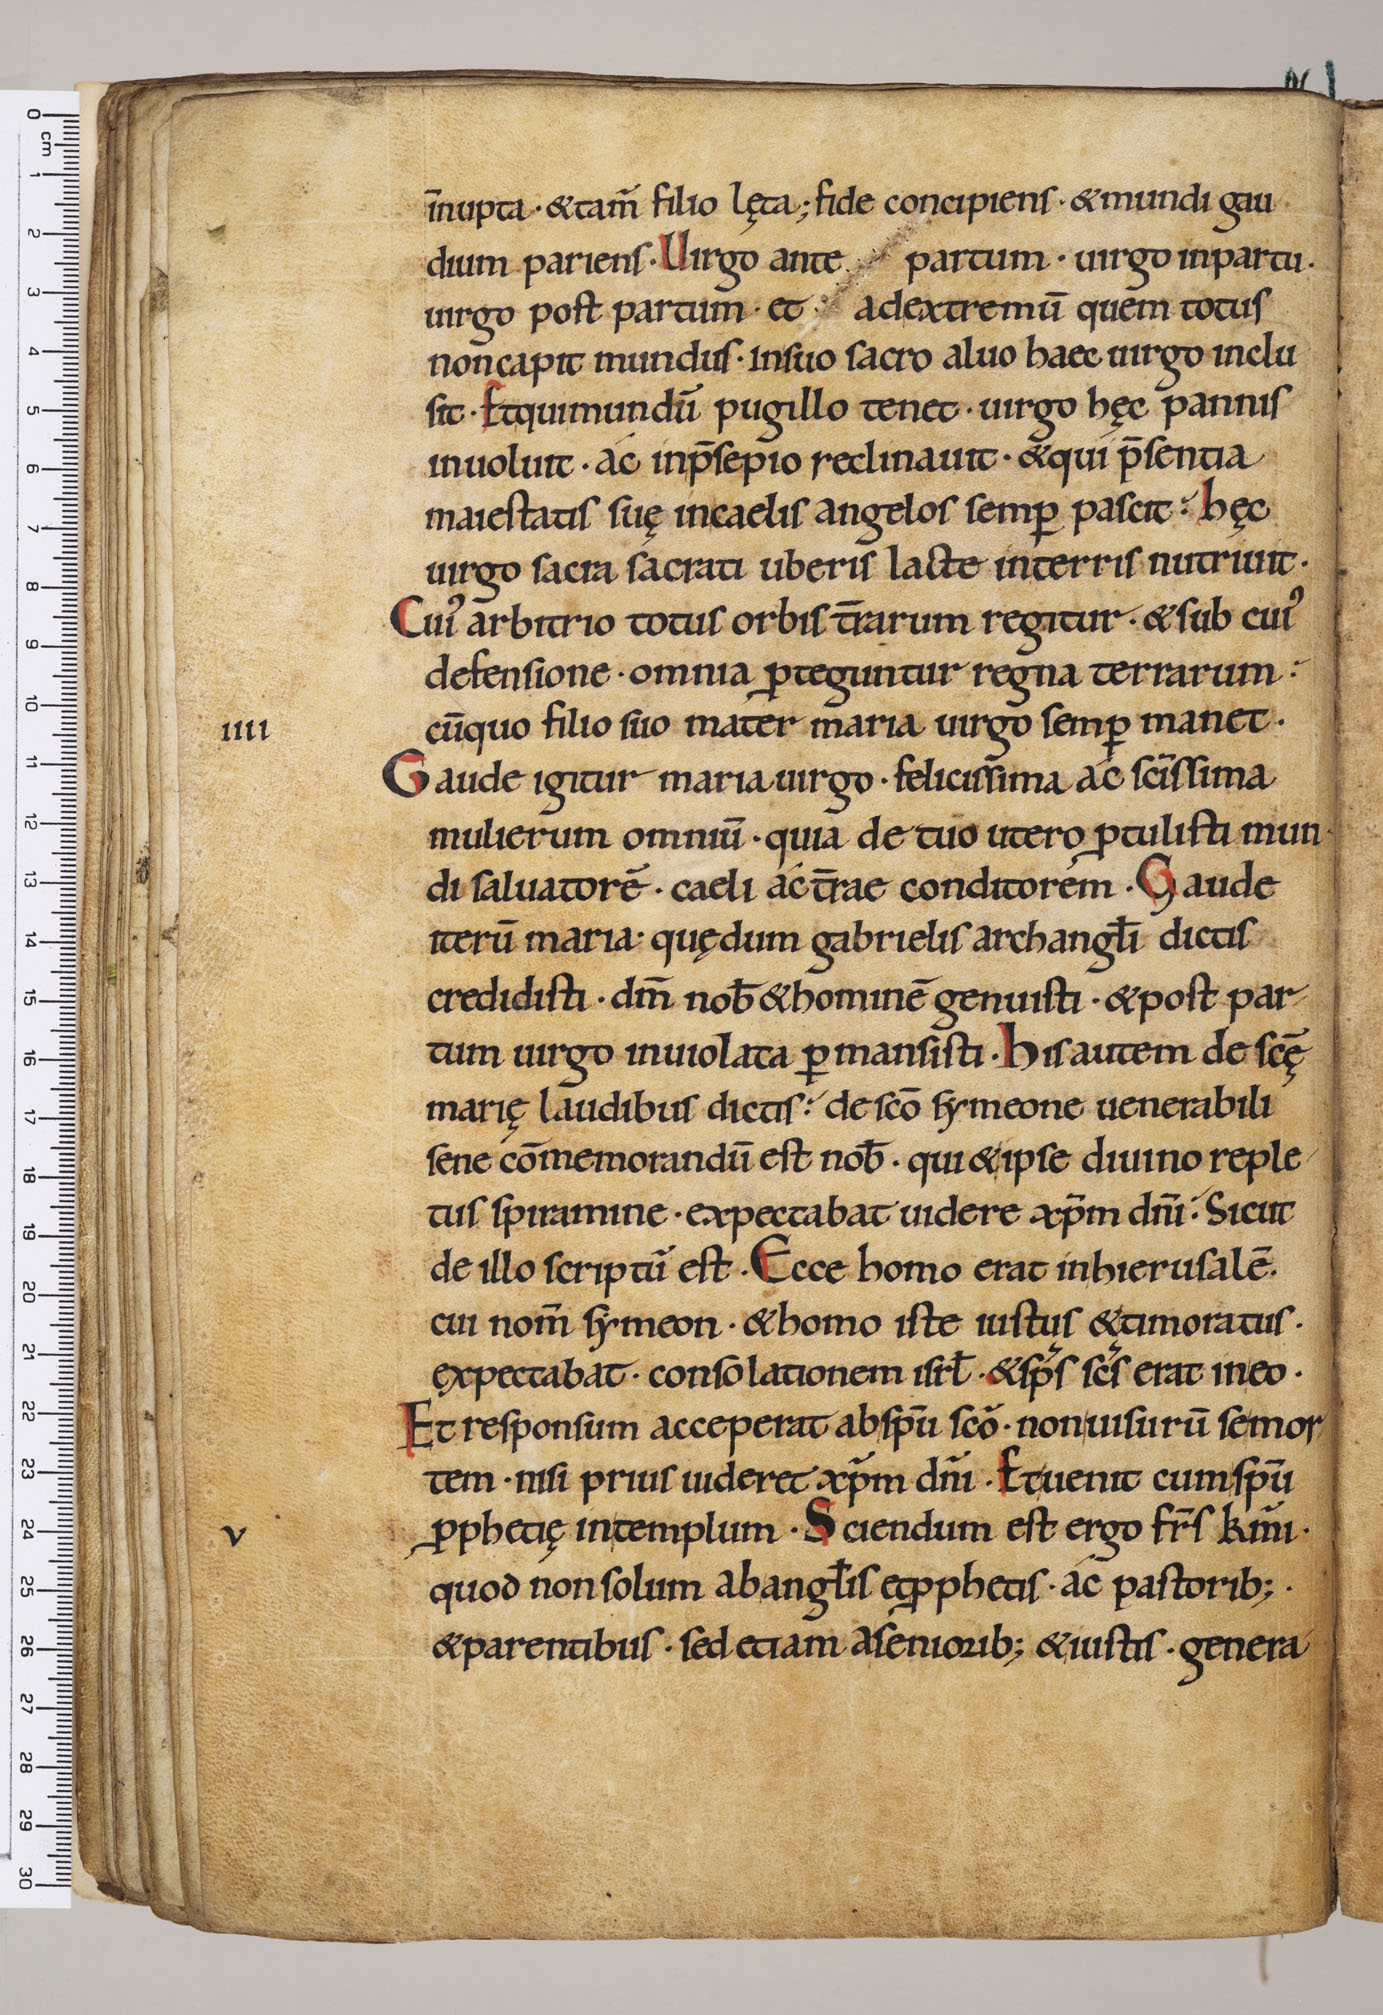 īnupta · & tam̄ filio lęta; fide concipiens · & mundi gau
dium pariens · Uirgo ante partum · uirgo inpartu ·
uirgo post partum · et adextremū quem totus
noncapit mundus · insuo sacro aluo haec uirgo inclu
sit · Etquimundū pugillo tenet · uirgo hęc pannis
inuoluit · ac inp̄sepio reclinauit · & qui p̄sentia
maiestatis suę incaelis angelos semꝑ pascit : hęc
uirgo sacra sacrati uberis lacte interris nutriuit ·
Cuiꝰ arbitrio totus orbis tr̄arum regitur · & sub cuiꝰ
defensione · omnia ꝓteguntur regna terrarum :
cūquo filio suo mater maria uirgo semꝑ manet ·
IIII
Gaude igitur maria uirgo · felicissima ac sc̄issima
mulierum omniū · quia de tuo utero ꝓtulisti mun
di saluatorē · caeli ac tr̄ae conditorem · Gaude
iterū maria · quędum gabrielis archangl̄i dictis
credidisti · dm̄ nob̄ & hominē genuisti · & post par
tum uirgo inuiolata ꝑmansisti · his autem de sc̄ę
marię laudibus dictis : de sc̄o symeone uenerabili
sene cōmemorandū est nob̄ · qui & ipse diuino reple
tus spiramine · expectabat uidere xp̄m dn̄i : Sicut
de illo scriptū est · Ecce homo erat inhierusalē ·
cui nom̄ symeon · & homo iste iustus & timoratus ·
expectabat · consolationem isrl̄ · & sp̄s sc̄s erat ineo ·
Et responsum acceperat absp̄u sc̄o · nonuisurū semor
tem · nisi prius uideret xp̄m dn̄i · Etuenit cumsp̄u
ꝓphetię intemplum · Sciendum est ergo fr̄s km̄i ·
V
quod nonsolum abangl̄is etꝓphetis · ac pastorib; ·
& parentibus · sed etiam asenioribus; & iustis · genera